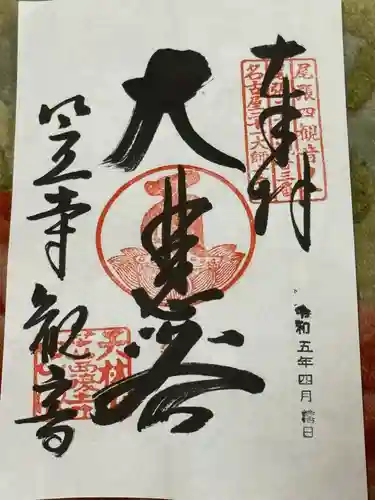 奉拝
尾張四観音
名古屋二十一大師
大悲閣
笠寺観音
天林山
令和五年四月吉日